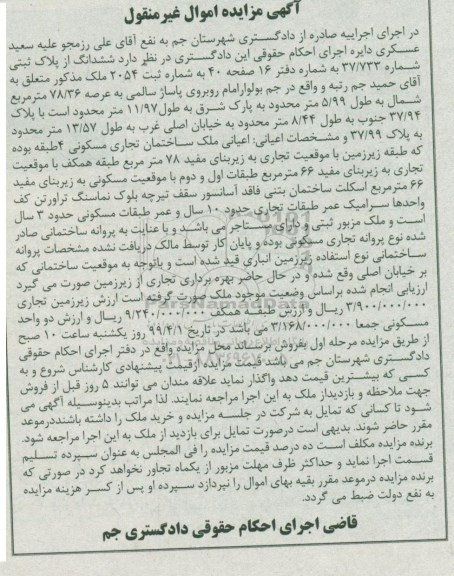 آگهی مزایده اموال غیرمنقول
در اجرای اجراییه صادره از دادگستری شهرستان جم به نفع آقای علی رزمجو علیه سعید
عسکری دایره اجرای احکام حقوقی این دادگستری در نظر دارد ششدانگ از پلاک ثبتی
شماره ۳۷/۷۳۳ به شماره دفتر ۱۶ صفحه ۴۰ به شماره ثبت ۲۰۵۴ ملک مذکور متعلق به
آقای حمید جم رتبه و واقع در جم بولوارامام روبروی پاساژ سالمی به عرصه ۷۸/۳۶ مترمربع
شمال به طول ۵/۹۹ متر محدود به پارک شرق به طول۱۱/۹۷ متر محدود است با پلاک
۳۷/۹۴ جنوب به طول ۸/۴۴ متر محدود به خیابان اصلی غرب به طول ۱۳/۵۷ متر محدود
به پلاک ۳۷/۹۹ و مشخصات اعیانی: اعیانی ملک ساختمان تجاری مسکونی ۴طبقه بوده
که طبقه زیرزمین با موقعیت تجاری به زیربنای مفید ۷۸ متر مربع طبقه همکف با موقعیت
تجاری به زیربنای مفید ۶۶ مترمربع طبقات اول و دوم با موقعیت مسکونی به زیربنای مفید
۶۶ مترمربع اسکلت ساختمان بتنی فاقد آسانسور سقف تیرچه بلوک نماسنگ تراورتن کف
واحدها سرامیک عمر طبقات تجاری حدود ۱۰ سال و عمر طبقات مسکونی حدود ۳ سال
است و ملک مزبور ثبتی و دارای مستاجر می باشد و با عنایت به پروانه ساختمانی صادر
شده نوع پروانه تجاری مسکونی بوده و پایان کار توسط مالک دریافت نشده مشخصات پروانه
ساختمانی نوع استفاده زیرزمین انباری قید شده است و باتوجه به موقعیت ساختمانی که
بر خیابان اصلی واقع شده و در حال حاضر بهره برداری تجاری از زیرزمین صورت می گیرد
ارزیابی انجام شده براساس وضعیت موجود ملک صورت گرفته است ارزش زیرزمین تجاری
۳/۹۰۰/۰۰۰/۰۰۰ ریال و ارزش طبقه همکف ۹/۲۴۰/۰۰۰/۰۰۰ ریال و ارزش دو واحد
مسکونی جمعا ۳/۱۶۸/۰۰۰/۰۰۰ می باشد که در تاریخ ۹۹/۴/۱ روز یکشنبه ساعت ۱۰ صبح
از طریق مزایده مرحله اول بفروش برساند محل مزایده واقع در دفتر اجرای احکام حقوقی
دادگستری شهرستان جم می باشد قیمت مزایده ازقیمت پیشنهادی کارشناس شروع و به
کسی که بیشترین قیمت دهد واگذار نماید علاقه مندان می توانند ۵ روز قبل از فروش
جهت ملاحظه و بازدیداز ملک به این اجرا مراجعه نمایند. لذا مراتب بدینوسیله آگهی می
شود تا کسانی که تمایل به شرکت در جلسه مزایده و خرید ملک را داشته باشنددرموعد
مقرر حاضر شوند. بدیهی است درصورت تمایل برای بازدید از ملک به این اجرا مراجعه شود.
برنده مزایده مکلف است ده درصد قیمت مزایده را فی المجلس به عنوان سپرده تسلیم
قسمت اجرا نماید و حداکثر ظرف مهلت مزبور از یکماه تجاوز نخواهد کرد در صورتی که
برنده مزایده درموعد مقرر بقیه بهای اموال را نپردازد سپرده او پس از کسر هزینه مزایده
به نفع دولت ضبط می گردد.
قاضی اجرای احکام حقوقی دادگستری جم